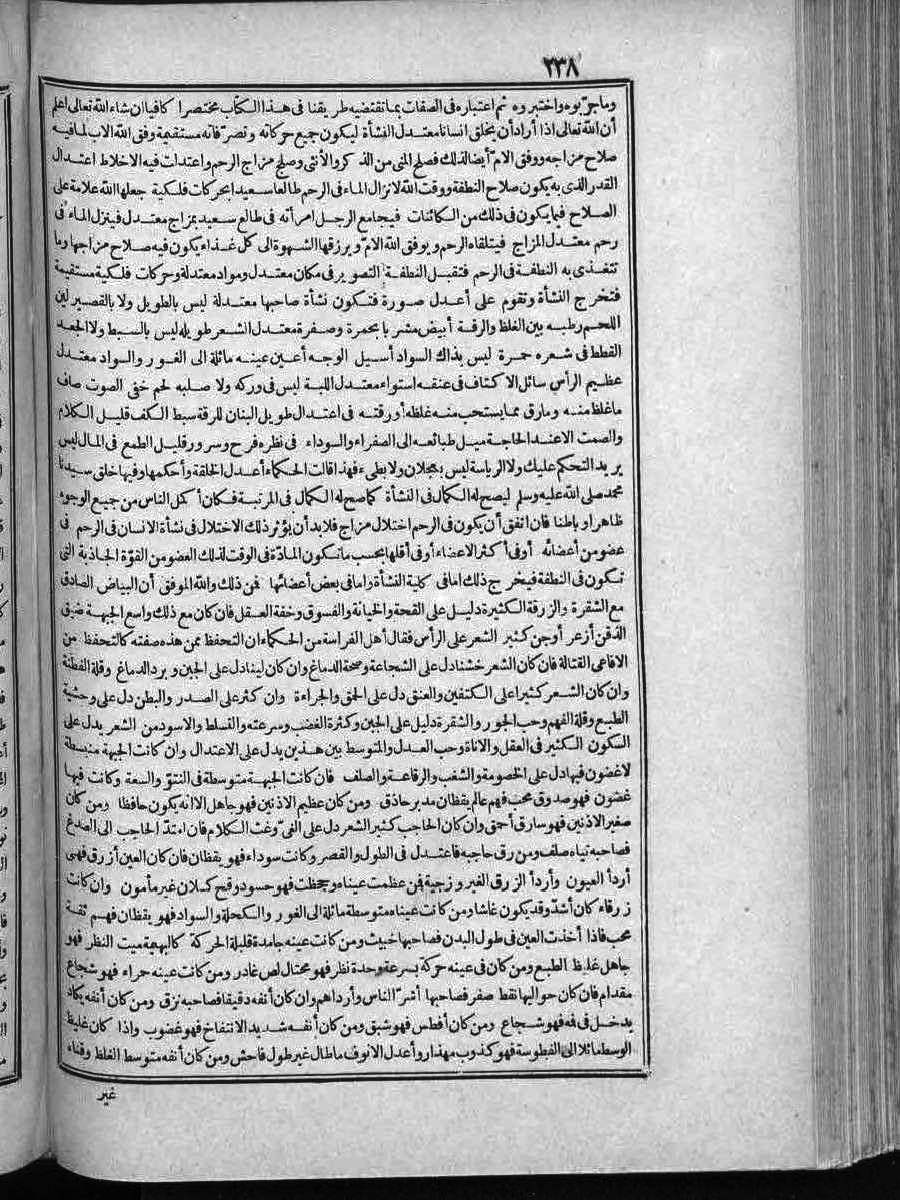 ٢٣٨
وما جرّبوه واختبروه ثم اعتباره فى الصفات بما تقتضيه طريقنا فى هذا الكتاب مختصرا كافيا ان شاء الله تعالى اعلم
أن الله تعالى اذا أراد أن يخلق انسانا معتدل النشأة ليكون جميع حركاته وتصرّفاته مستقيمة وفق الله الاب لمافيه
صلاح مزاجه ووفق الامّ أيضا لذلك فصلح المنى من الذكر والأنثى وصلح مزاج الرحم واعتدلت فيه الاخلاط اعتدال
القدر الذى به يكون صلاح النطفة ووقت الله لانزال الماء فى الرحم طالعا سعيدا بحركات فلكية جعلها الله علامة على
الصلاح فيما يكون فى ذلك من الكائنات فيجامع الرجل امرأته فى طالع سعيد بمزاج معتدل فينزل الماء فى
رحم معتدل المزاج فيتلقاه الرحم ويوفق الله الامّ ويرزقها الشهوة الى كل غذاء يكون فيه صلاح مزاجها وما
تتغذى به النطفة فى الرحم فتقبل النطفة التصوير فى مكان معتدل ومواد معتدلة وحركات فلكية مستقيمة
فتخرج النشأة وتقوم على أعدل صورة فتكون نشأة صاحبها معتدلة ليس بالطويل ولا بالقصير لين
اللحم رطبه بين الغلظ والرقة أبيض مشربا بحمرة وصفرة معتدل الشعر طويله ليس بالسبط ولا الجعد
القطط فى شعره حمرة ليس بذاك السواد أسيل الوجه أعين عينه مائلة الى الغور والسواد معتدل
عظيم الرأس سائل الاكتاف فى عنقه استواء معتدل اللبة ليس فى وركه ولا صلبه لحم خفى الصوت صاف
ماغلظ منه ومارق ممايستحب منه غلظه أورقته فى اعتدال طويل البنان للرقة سبط الكف قليل الكلام
والصمت الاعند الحاجة ميل طبائعه الى الصفراء والسوداء فى نظره فرح وسرور قليل الطمع فى المال ليس
يريد التحكم عليك ولا الرياسة ليس بعجلان ولا بطىء فهذا قالت الحكماء أعدل الخلقة وأحكمها وفيها خلق سيدنا
محمد صلى الله عليه وسلم ليصح له الكمال فى النشأة كما صح له الكمال فى المرتبة فكان أكمل الناس من جميع الوجوه
ظاهرا وباطنا فان اتفق أن يكون فى الرحم اختلال مزاج فلابد أن يؤثر ذلك الاختلال فى نشأة الانسان فى الرحم فى
عضو من أعضائه أو فى أكثر الاعضاء أو فى أقلها بحسب ماتكون المادّة فى الوقت لذلك العضو من القوّة الجاذبة التى
تكون فى النطفة فيخرج ذلك اما فى كلية النشأة واما فى بعض أعضائها فمن ذلك والله الموفق أن البياض الصادق
مع الشقرة والزرقة الكثيرة دليل على القحة والخيانة والفسوق وخفة العقل فان كان مع ذلك واسع الجبهة ضيق
الذقن أزعر أوجن كثير الشعر على الرأس فقال أهل الفراسة من الحكماء ان التحفظ ممن هذه صفته كالتحفظ من
الافاعى القتالة فان كان الشعر خشنا دل على الشجاعة وصحة الدماغ وان كان لينا دل على الجبن وبرد الدماغ وقلة الفطنة
وان كان الشعر كثيرا على الكتفين والعنق دل على الحمق والجراءة وان كثر على الصدر والبطن دل على وحشية
الطبع وقلة الفهم وحب الجور والشقرة دليل على الجبن وكثرة الغضب وسرعته والتسلط والاسود من الشعر يدل على
السكون الكثير فى العقل والاناة وحب العدل والمتوسط بين هذين يدل على الاعتدال وان كانت الجبهة منبسطة
لاغضون فيها دل على الخصومة والشغب والرقاعة والصلف فان كانت الجبهة متوسطة فى النتوّ والسعة وكانت فيها
غضون فهو صدوق محب فهم عالم يقظان مدبر حاذق ومن كان عظيم الاذنين فهو جاهل الا انه يكون حافظا ومن كان
صغير الاذنين فهو سارق أحمق وان كان الحاجب كثير الشعر دل على الغىّ وغث الكلام فان امتدّ الحاجب الى الصدغ
فصاحبه تياه صلف ومن رق حاجبه فاعتدل فى الطول والقصر وكانت سوداء فهو يقظان فان كان العين أزرق فهى
أردأ العيون وأردأ الزرق الفيروزجية فمن عظمت عيناه وجحظت فهو حسود وقح كسلان غير مأمون وان كانت
زرقاء كان أشدّ وقد يكون غاشا ومن كانت عيناه متوسطة مائلة الى الغور والكحلة والسواد فهو يقظان فهم ثقة
محب فاذا أخذت العين فى طول البدن فصاحبها خبيث ومن كانت عينه جامدة قليلة الحركة كالبهيمة ميت النظر فهو
جاهل غليظ الطبع ومن كان فى عينه حركة بسرعة وحدة نظر فهو محتال لص غادر ومن كانت عينه حراء فهو شجاع
مقدام فان كان حواليها نقط صفر فصاحبها أشرّ الناس وأرداهم وان كان أنفه دقيقا فصاحبه نزق ومن كان أنفه يكاد
يدخل فى فه فهو شجاع ومن كان أفطس فهو شبق ومن كان أنفه شديد الانتفاخ فهو غضوب واذا كان غليظ
الوسط مائلا الى الفطوسة فهو كذوب مهذار وأعدل الانوف ماطال غير طول فاحش ومن كان أنفه متوسط الغلظ وقناه
غير